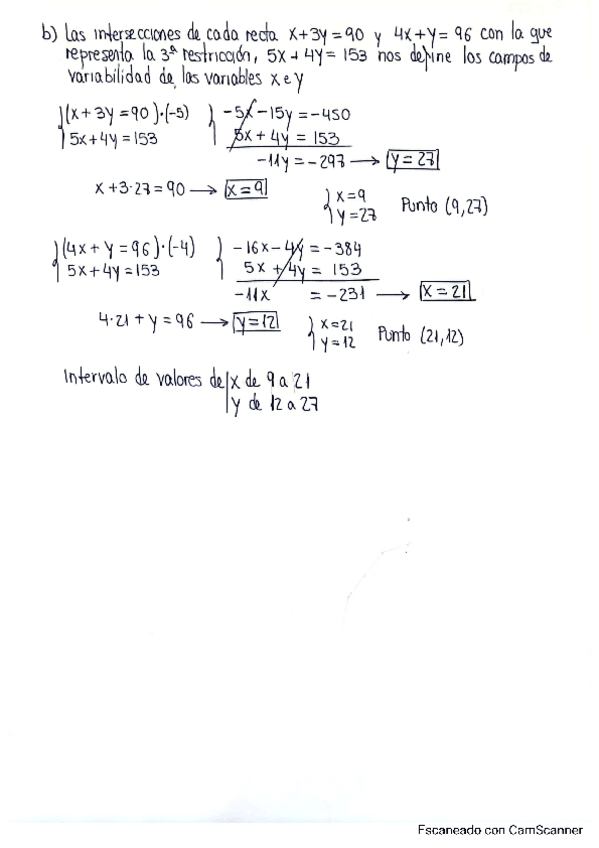 b) Las intersecciones de cada recta x+3y=90 y 4x+y=96 con la que
representa la 3ª restricción, 5x+4y=153 nos define los campos de
variabilidad de las variables x e y
(x+3y=90)·(-5) -5x-15y=-450
5x+4y=153 5x+4y=153
-11y=-297 → y=27
x+3·27=90 → x=9 x=9
y=27 Punto (9,27)
(4x+y=96)·(-4) -16x-4y=-384
5x+4y=153 5x+4y=153
-11x =-231 → x=21
4·21+y=96 → y=12 x=21
y=12 Punto (21,12)
Intervalo de valores de x de 9 a 21
y de 12 a 27
Escaneado con CamScanner